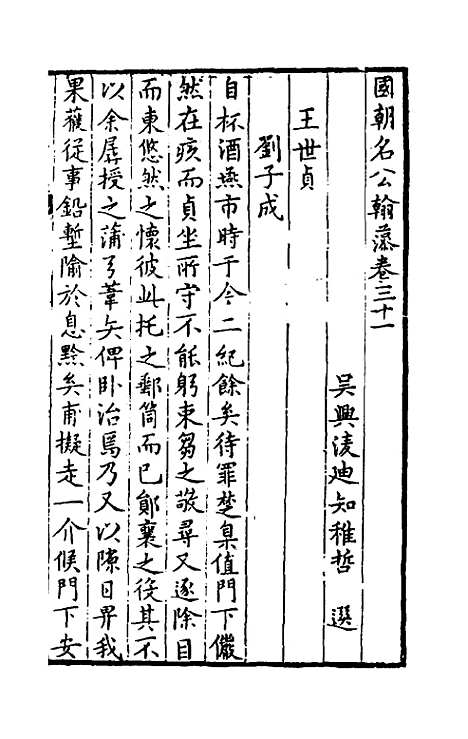 國朝名公翰藻卷三十一
吴興淩迪知稚哲 選
王世貞
劉子成
自杯酒燕市時于今二紀餘矣待罪楚臬值門下儼
然在疚而貞坐所守不能躬束芻之敬尋又逐除目
而東悠然之懷彼此托之郵筒而已鄖襄之役其不
以余孱授之蒲弓葦矢俾卧治焉乃又以隙日畀我
果蓏從事鉛墼隃於息黥矣甫擬走一介候門下安